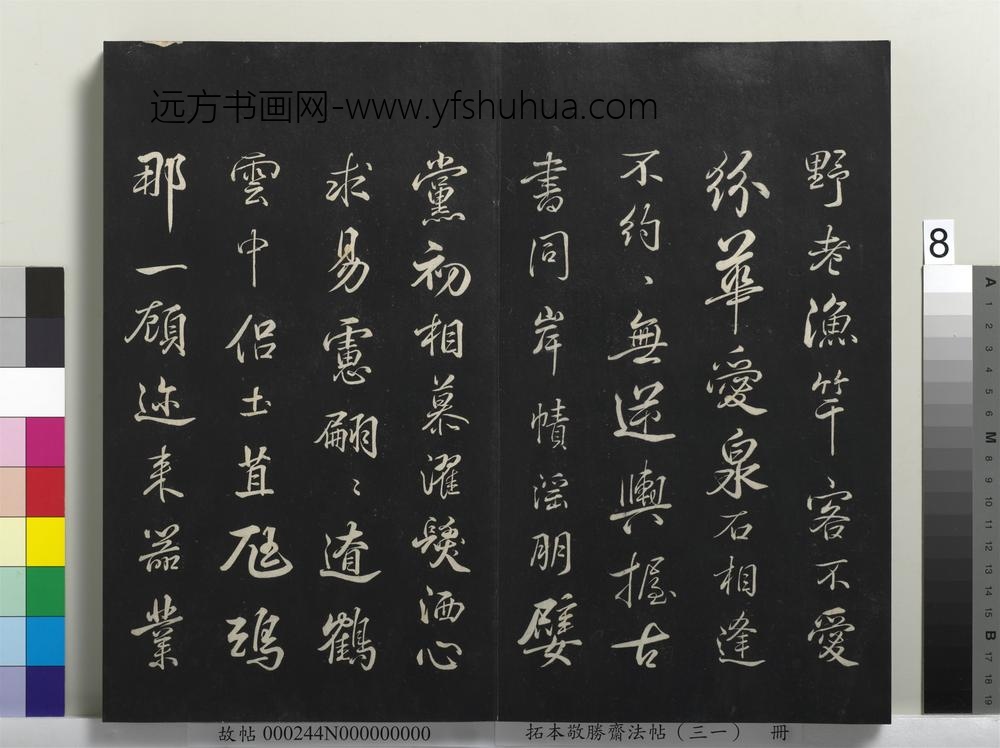 远方书画网-www.yfshuhua.com
野老漁竿客不愛
紛華愛泉石相逢
不約〻無逆輿握古
書同岸幘淫朋嬖
黨初相慕濯髮洒心
求易慮翩〻遼鶴
雲中侶土苴尫鴟
那一顧迩来器業
8
故帖 000244N000000000
拓本敬勝齋法帖（三一） 冊
A 1 2 3 4 5 6 M 8 9 10 11 12 13 14 15 B 17 18 19